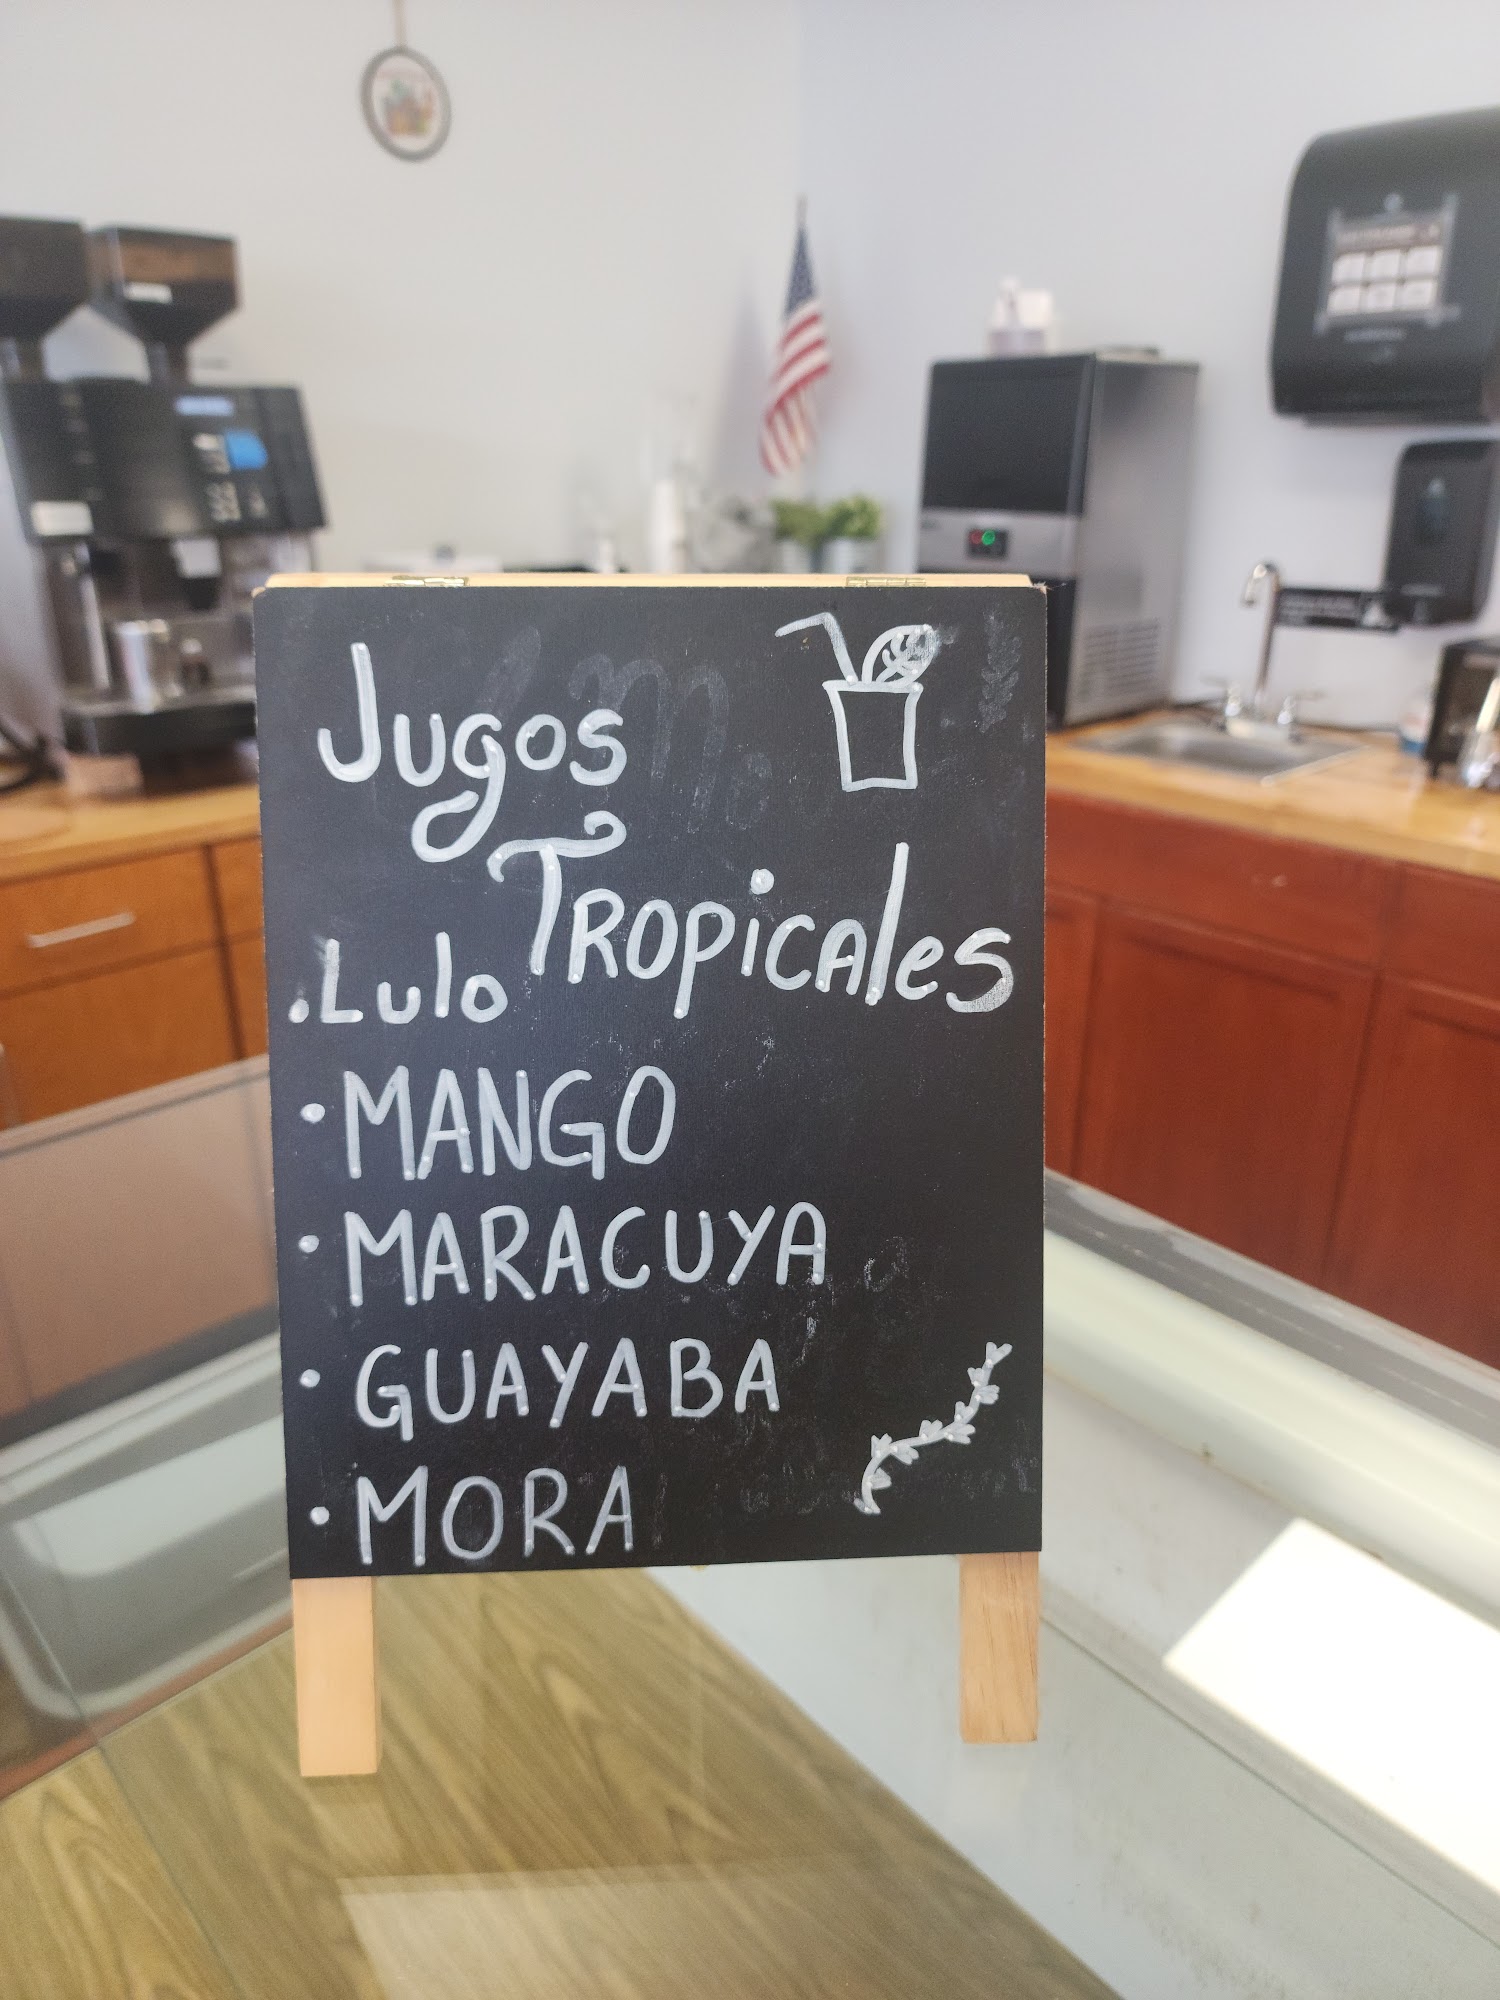 Jugos
Tropicales
.Lulo
• MANGO
• MARACUYA
• GUAYABA
• MORA